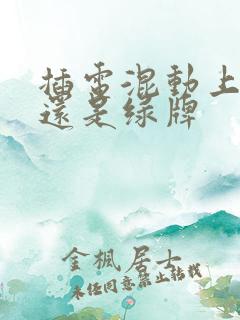 插電混動上
還是绿牌
金楓居士
未经同意禁止转载